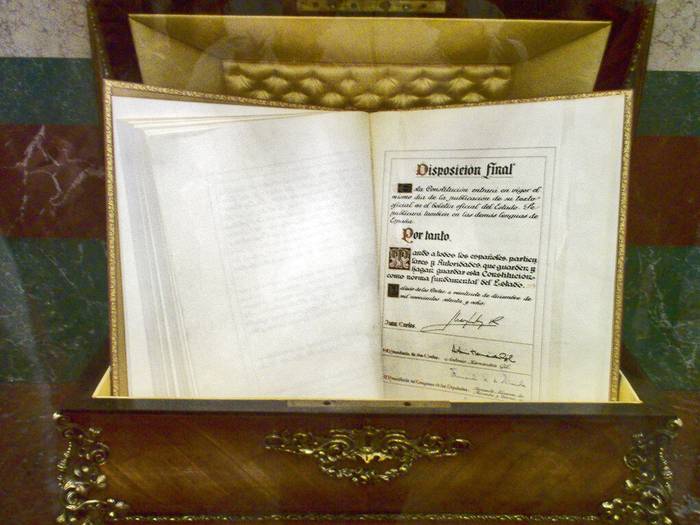 Disposición final
Esta Constitución entrará en vigor el
mismo día de la publicación de su texto
oficial en el boletín oficial del Estado. Se
publicará también en las demás lenguas de
España.
Por tanto,
Mando a todos los españoles, particu
lares y Autoridades, que guarden y
hagan guardar esta Constitución
como norma fundamental del Estado.
Palacio de las Cortes, a veintisiete de diciembre de
mil novecientos setenta y ocho.
Juan Carlos
El Presidente de las Cortes,
Antonio Hernández Gil
El Presidente del Congreso de los Diputados,